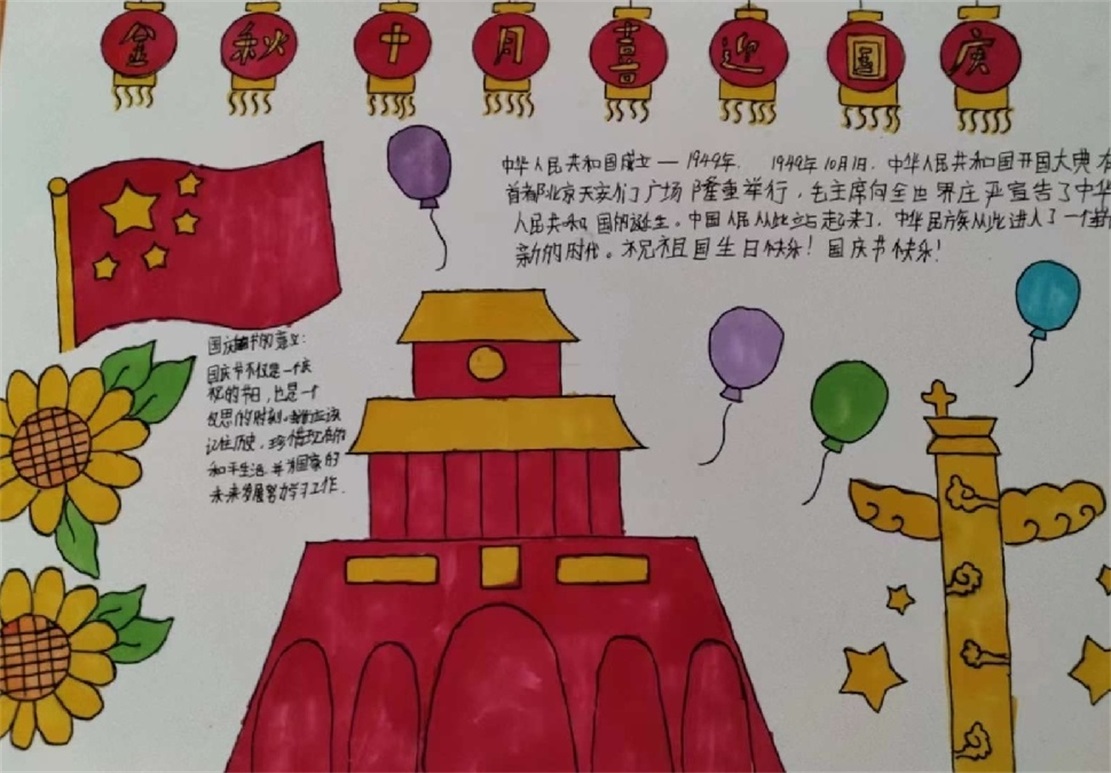 金秋十月喜迎国庆
中华人民共和国成立一1949年. 1949年10月1日. 中华人民共和国开国大典在
首都北京天安门了广场隆重举行，毛主席向全世界庄严宣告了中华
人民共和国的诞生。中国人民从此站起来了，中华民族从此进入了一个崭
新的时代。祝祖国生日快乐！国庆节快乐！
国庆节的意义：
国庆节不仅是一个庆
祝的节日，也是一个
反思的时刻。我们应该
记住历史，珍惜现有的
和平生活.并为国家的
未来发展努力学习工作.